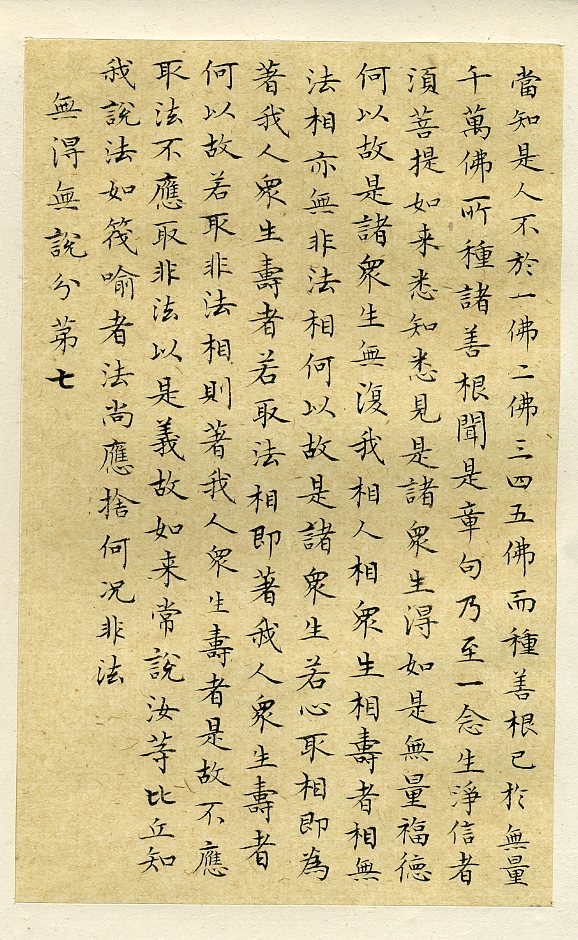 當知是人不於一佛二佛三四五佛而種善根已於無量
千萬佛所種諸善根聞是章句乃至一念生淨信者
須菩提如来悉知悉見是諸衆生得如是無量福德
何以故是諸衆生無復我相人相衆生相壽者相無
法相亦無非法相何以故是諸衆生若心取相即為
著我人衆生壽者若取法相即著我人衆生壽者
何以故若取非法相則著我人衆生壽者是故不應
取法不應取非法以是義故如来常說汝等比丘知
我說法如筏喻者法尚應捨何況非法
無得無說分第七